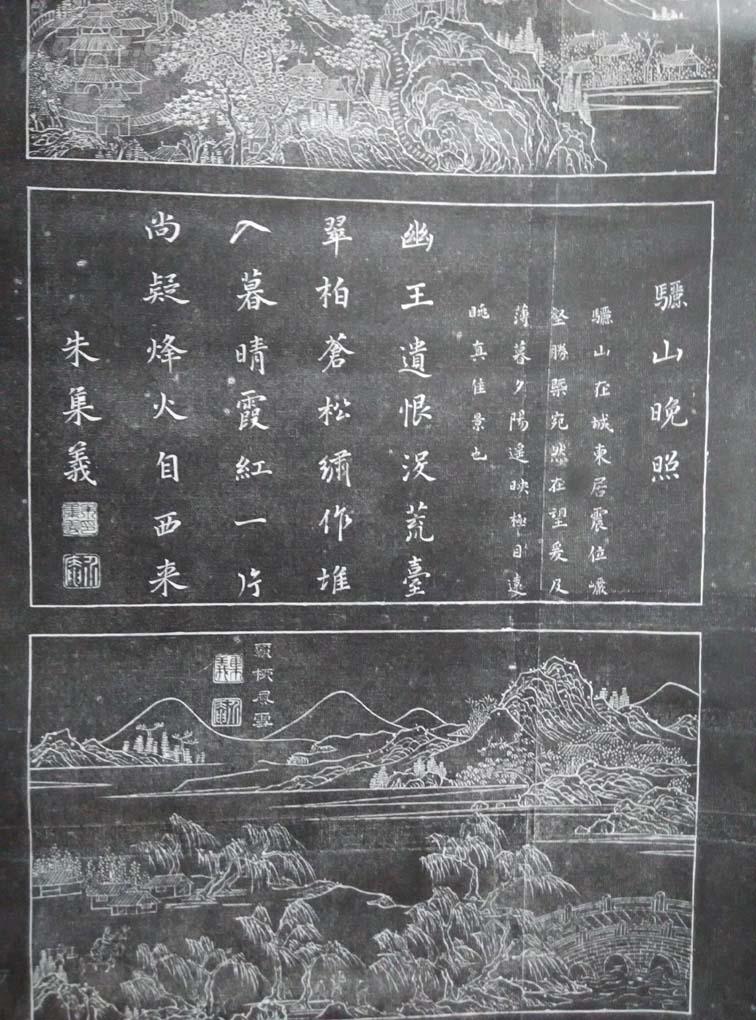 驪山晚照
驪山在城東居震位巖
壑勝槩宛然在望爰及
薄暮夕陽遙映極目遠
眺真佳景也
幽王遺恨没荒臺
翠柏蒼松繡作堆
入暮晴霞紅一片
尚疑烽火自西来
朱集義